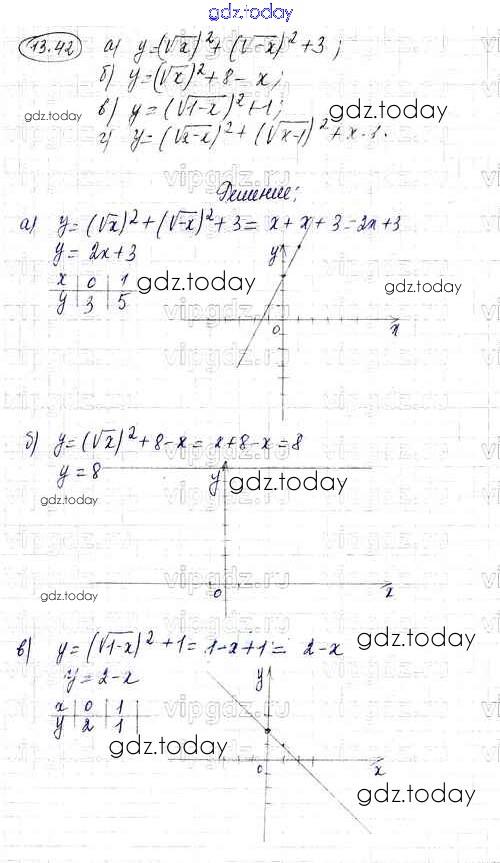 gdz.today
13.42 а) y=(√x)²+(√-x)²+3;
б) y=(√x)²+8-x;
gdz.today
в) y=(√1-x)²+1;
gdz.today
г) y=(√x-x)²+(√x-1)²+x-1.
vipgdz.ru
Решение:
а) y=(√x)²+(√-x)²+3= x+x+3=2x+3
y= 2x+3
x | 0 | 1
y | 3 | 5
gdz.today
gdz.today
y
0
x
vipgdz.ru
б) y=(√x)²+8-x= x+8-x=8
y=8
gdz.today
gdz.today
y
0
x
vipgdz.ru
gdz.today
в) y=(√1-x)²+1= 1-x+1= 2-x
gdz.today
y=2-x
x | 0 | 1
y | 2 | 1
gdz.today
y
0
x
vipgdz.ru
gdz.today